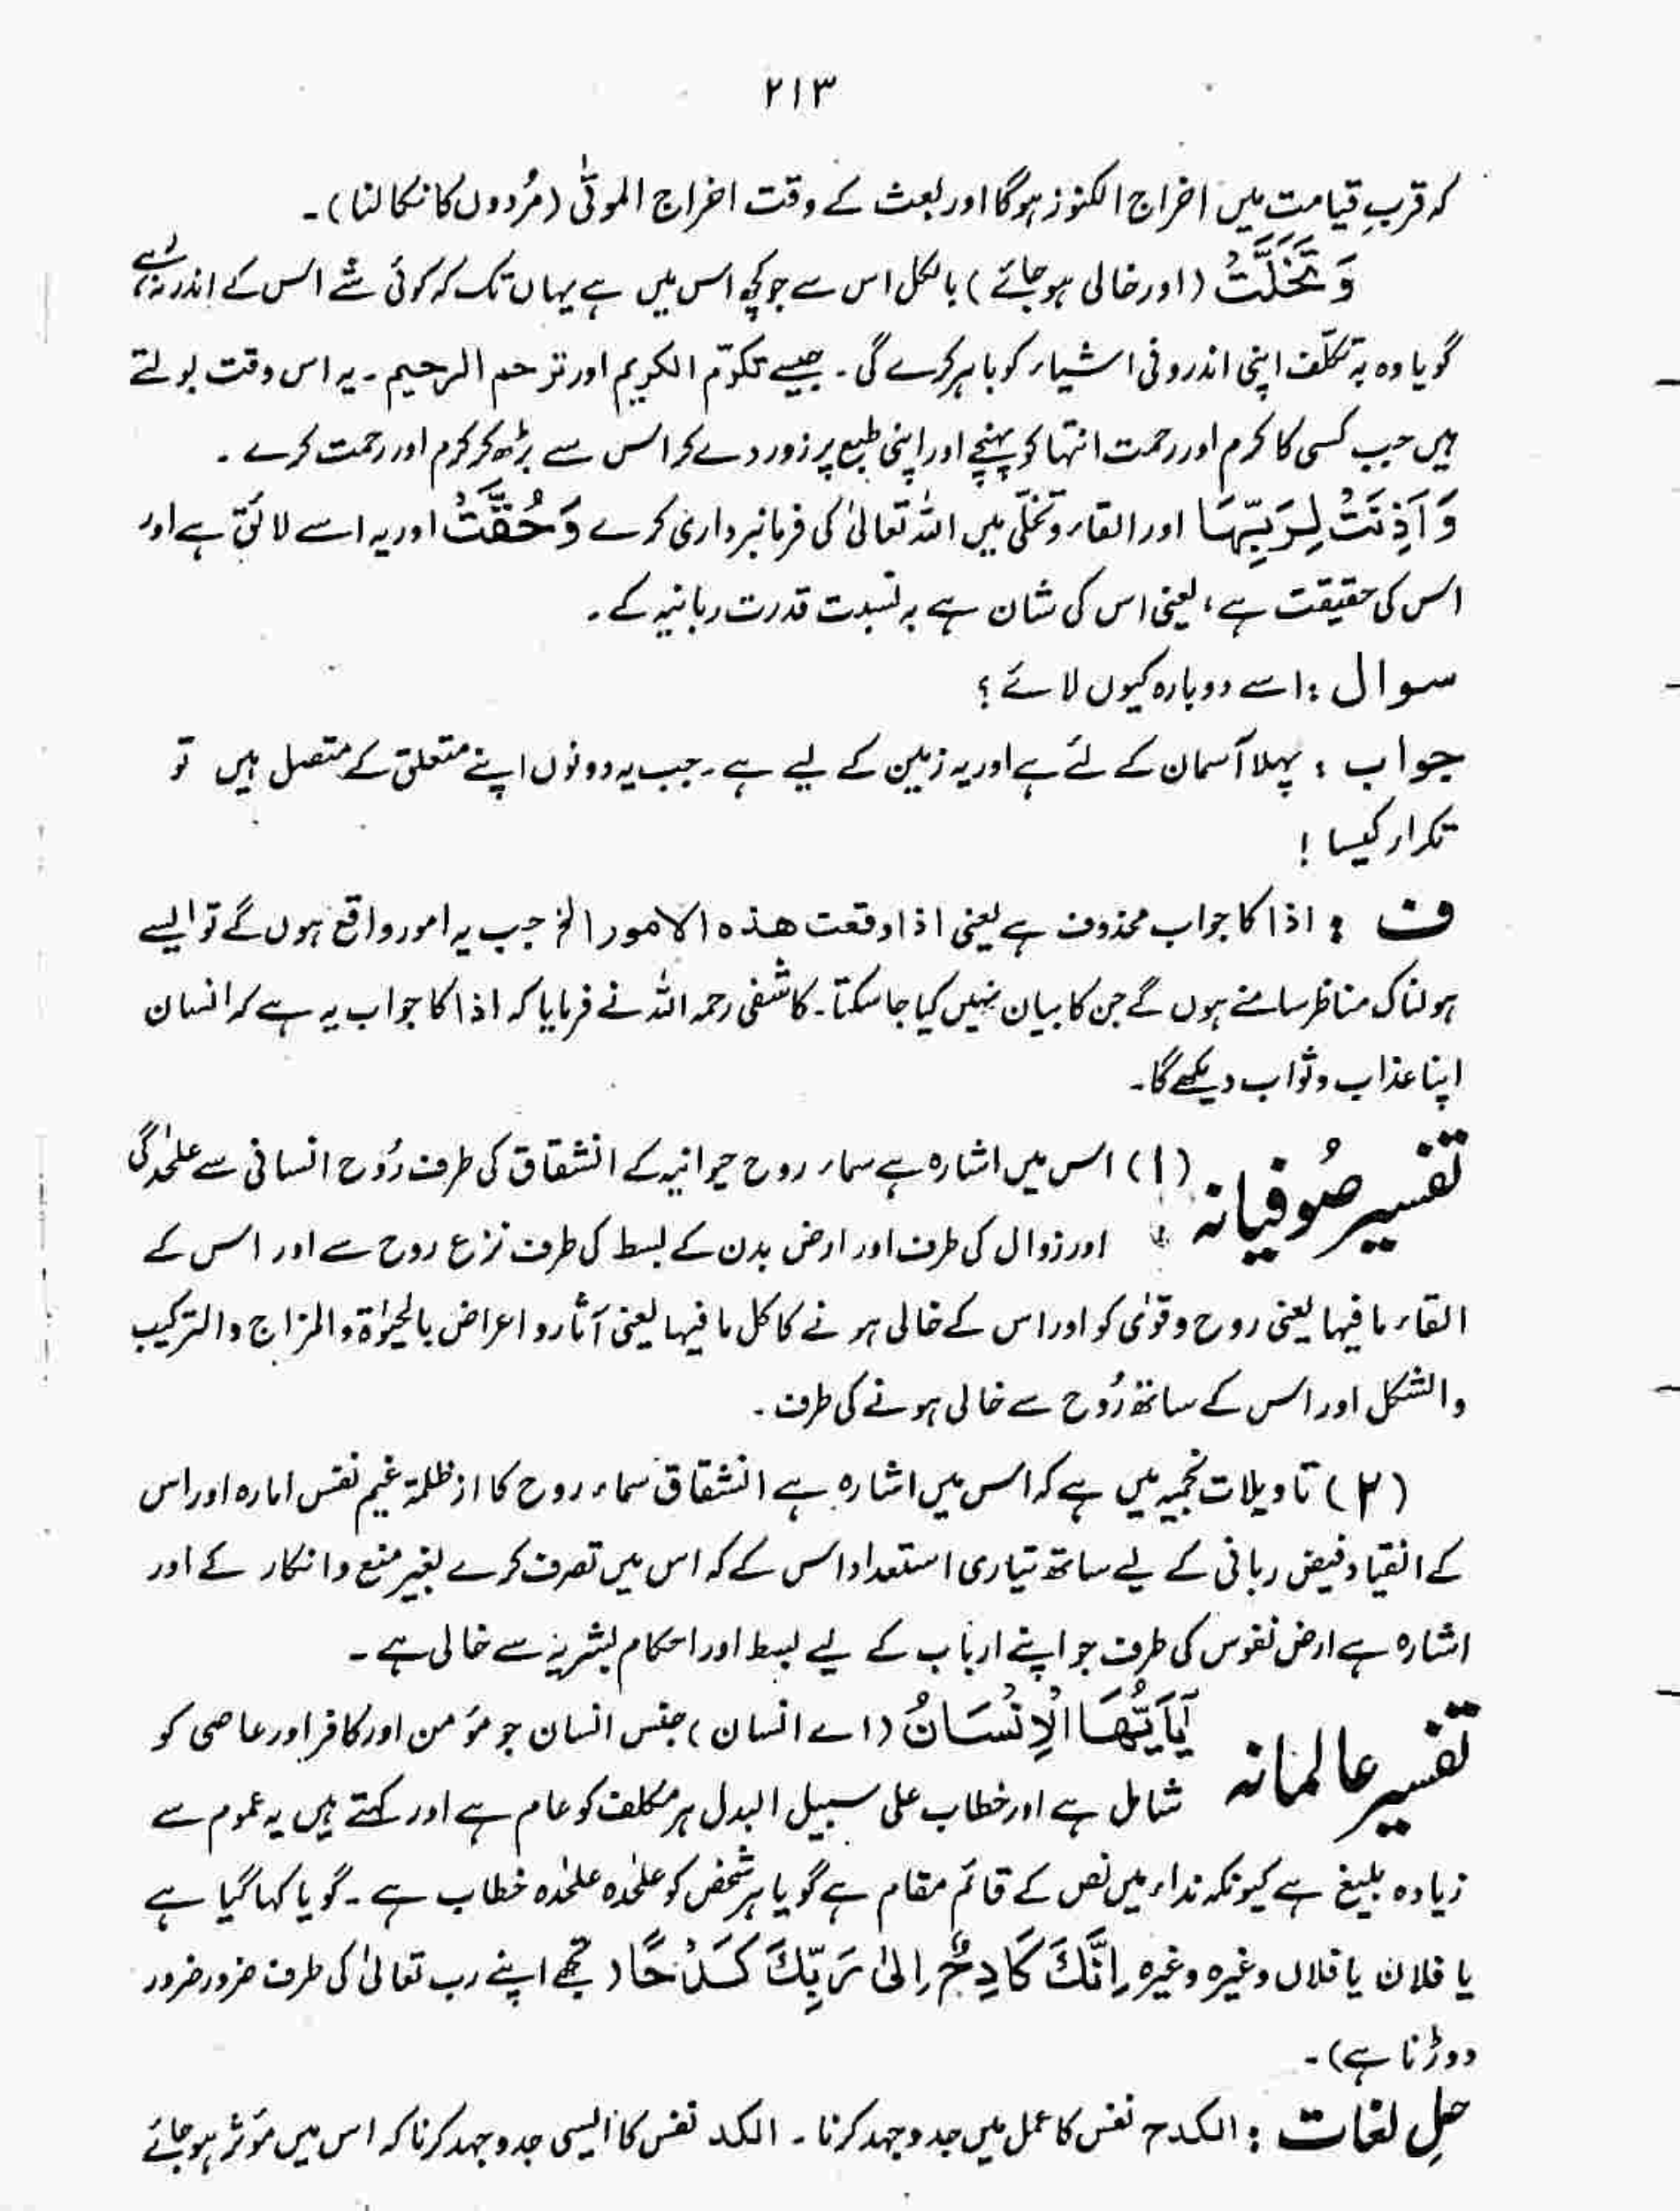 ۲۱۳
کہ قربِ قیامت میں اخراج الکنوز ہوگا اور بعث کے وقت اخراج الموتٰی (مُردوں کا نکالنا)۔
وَتَخَلَّتْ (اور خالی ہوجائے) بالکل اس سے جو کچھ اس میں ہے یہاں تک کہ کوئی شے اس کے اندر نہ رہے
گویا وہ بہ تکلّف اپنی اندرونی اشیاء کو باہر کرے گی۔ جیسے تکرّم الکریم اور ترحم الرحیم۔ یہ اس وقت بولتے
ہیں جب کسی کا کرم اور رحمت انتہا کو پہنچے اور اپنی طبع پر زور دے کر اس سے بڑھ کر کرم اور رحمت کرے۔
وَاَذِنَتْ لِرَبِّهَا اور القاء و تخلّی میں اللہ تعالیٰ کی فرمانبرداری کرے وَحُقَّتْ اور یہ اسے لائق ہے اور
اس کی حقیقت ہے، یعنی اس کی شان ہے بہ نسبت قدرت ربانیہ کے۔
سوال : اسے دوبارہ کیوں لائے؟
جواب : پہلا آسمان کے لئے ہے اور یہ زمین کے لیے ہے۔ جب یہ دونوں اپنے متعلق کے متصل ہیں تو
تکرار کیسا !
ف : اذا کا جواب محذوف ہے یعنی اذا وقعت هذه الامور الخ جب یہ امور واقع ہوں گے تو ایسے
ہولناک مناظر سامنے ہوں گے جن کا بیان نہیں کیا جا سکتا۔ کاشفی رحمہ اللہ نے فرمایا کہ اذا کا جواب یہ ہے کہ انسان
اپنا عذاب و ثواب دیکھے گا۔
تفسیر صُوفیانہ (۱) اس میں اشارہ ہے سماء روح حیوانیہ کے انشقاق کی طرف رُوح انسانی سے علٰحدگی
اور زوال کی طرف اور ارض بدن کے بسط کی طرف نزع روح سے اور اس کے
القاء ما فیہا یعنی روح و قوٰی کو اور اس کے خالی ہونے کا کل ما فیہا یعنی آثار و اعراض بالحیٰوة و المزاج و الترکیب
والشکل اور اس کے ساتھ رُوح سے خالی ہونے کی طرف۔
(۲) تاویلات نجمیہ میں ہے کہ اس میں اشارہ ہے انشقاق سماء روح کا از ظلمۃ غیم نفس امارہ اور اس
کے انقیاد فیض ربانی کے لیے ساتھ تیاری استعداد اس کے کہ اس میں تصرف کرے بغیر منع و انکار کے اور
اشارہ ہے ارض نفوس کی طرف جو اپنے ارباب کے لیے بسط اور احکام بشریہ سے خالی ہے۔
تفسیر عالمانہ يٰٓاَيُّهَا الْاِنْسَانُ (اے انسان) جنس انسان جو مؤمن اور کافر اور عاصی کو
شامل ہے اور خطاب علی سبیل البدل ہر مکلف کو عام ہے اور کہتے ہیں یہ عموم سے
زیادہ بلیغ ہے کیونکہ نداء میں نص کے قائم مقام ہے گویا ہر شخص کو علٰحدہ علٰحدہ خطاب ہے۔ گویا کہا گیا ہے
یا فلان یا فلاں وغیرہ وغیرہ اِنَّكَ كَادِحٌ اِلٰى رَبِّكَ كَدْحًا (تجھے اپنے رب تعالیٰ کی طرف ضرور ضرور
دوڑنا ہے)۔
حلِ لغات : الکدح نفس کا عمل میں جدوجہد کرنا۔ الکد نفس کا ایسی جدوجہد کرنا کہ اس میں مؤثر ہوجائے